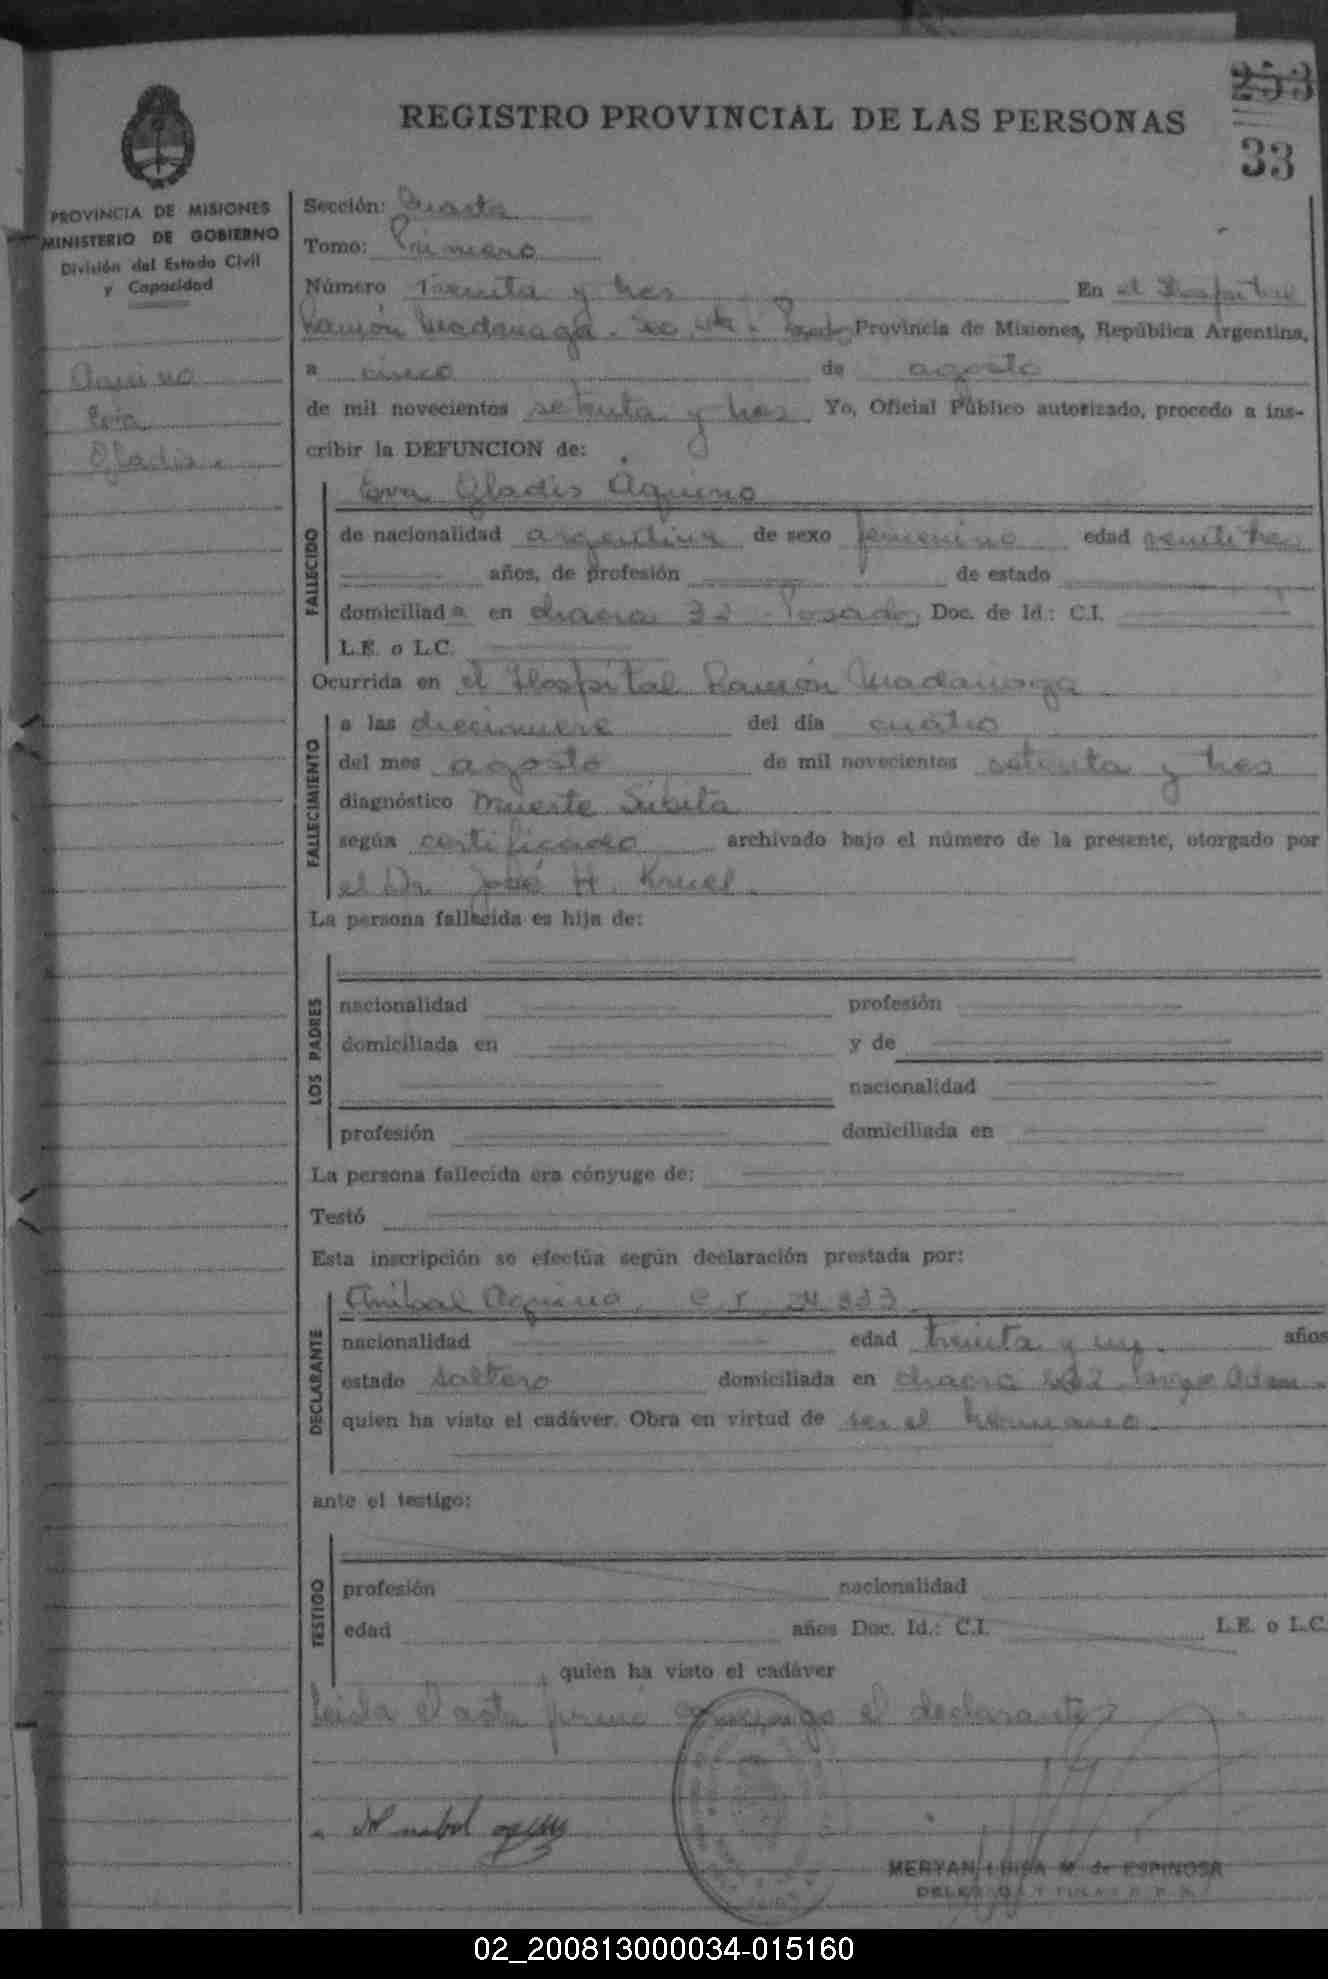 253
33
REGISTRO PROVINCIAL DE LAS PERSONAS
PROVINCIA DE MISIONES
MINISTERIO DE GOBIERNO
División del Estado Civil
y Capacidad
Aquino
Eva
Gladis.
Sección: Cuarta
Tomo: Primero
Número Treinta y tres En el Hospital
Ramón Madariaga - Posadas Provincia de Misiones, República Argentina,
a cinco de agosto
de mil novecientos setenta y tres Yo, Oficial Público autorizado, procedo a ins-
cribir la DEFUNCION de:
Eva Gladis Aquino
FALLECIDO
de nacionalidad argentina de sexo femenino edad veintitres
años, de profesión de estado
domiciliada en chacra 32 - Posadas, Doc. de Id.: C.I.
L.E. o L.C.
Ocurrida en el Hospital Ramón Madariaga
FALLECIMIENTO
a las diecinueve del día cuatro
del mes agosto de mil novecientos setenta y tres
diagnóstico Muerte Súbita
según certificado archivado bajo el número de la presente, otorgado por
el Dr. José H. Kruel.
La persona fallecida es hija de:
LOS PADRES
nacionalidad profesión
domiciliada en y de
nacionalidad
profesión domiciliada en
La persona fallecida era cónyuge de:
Testó
Esta inscripción se efectúa según declaración prestada por:
DECLARANTE
Anibal Aquino, C.I.
nacionalidad edad treinta y un. años
estado soltero domiciliada en chacra
quien ha visto el cadáver. Obra en virtud de ser el hermano.
ante el testigo:
TESTIGO
profesión nacionalidad
edad años Doc. Id.: C.I. L.E. o L.C.
quien ha visto el cadáver
Leida el acta firmó conmigo el declarante
MERYAN LUISA M. de ESPINOSA
02_200813000034-015160